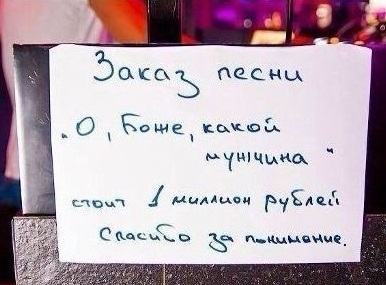 Заказ песни
„О, Боже, какой
мужчина"
стоит 1 миллион рублей
Спасибо за понимание.